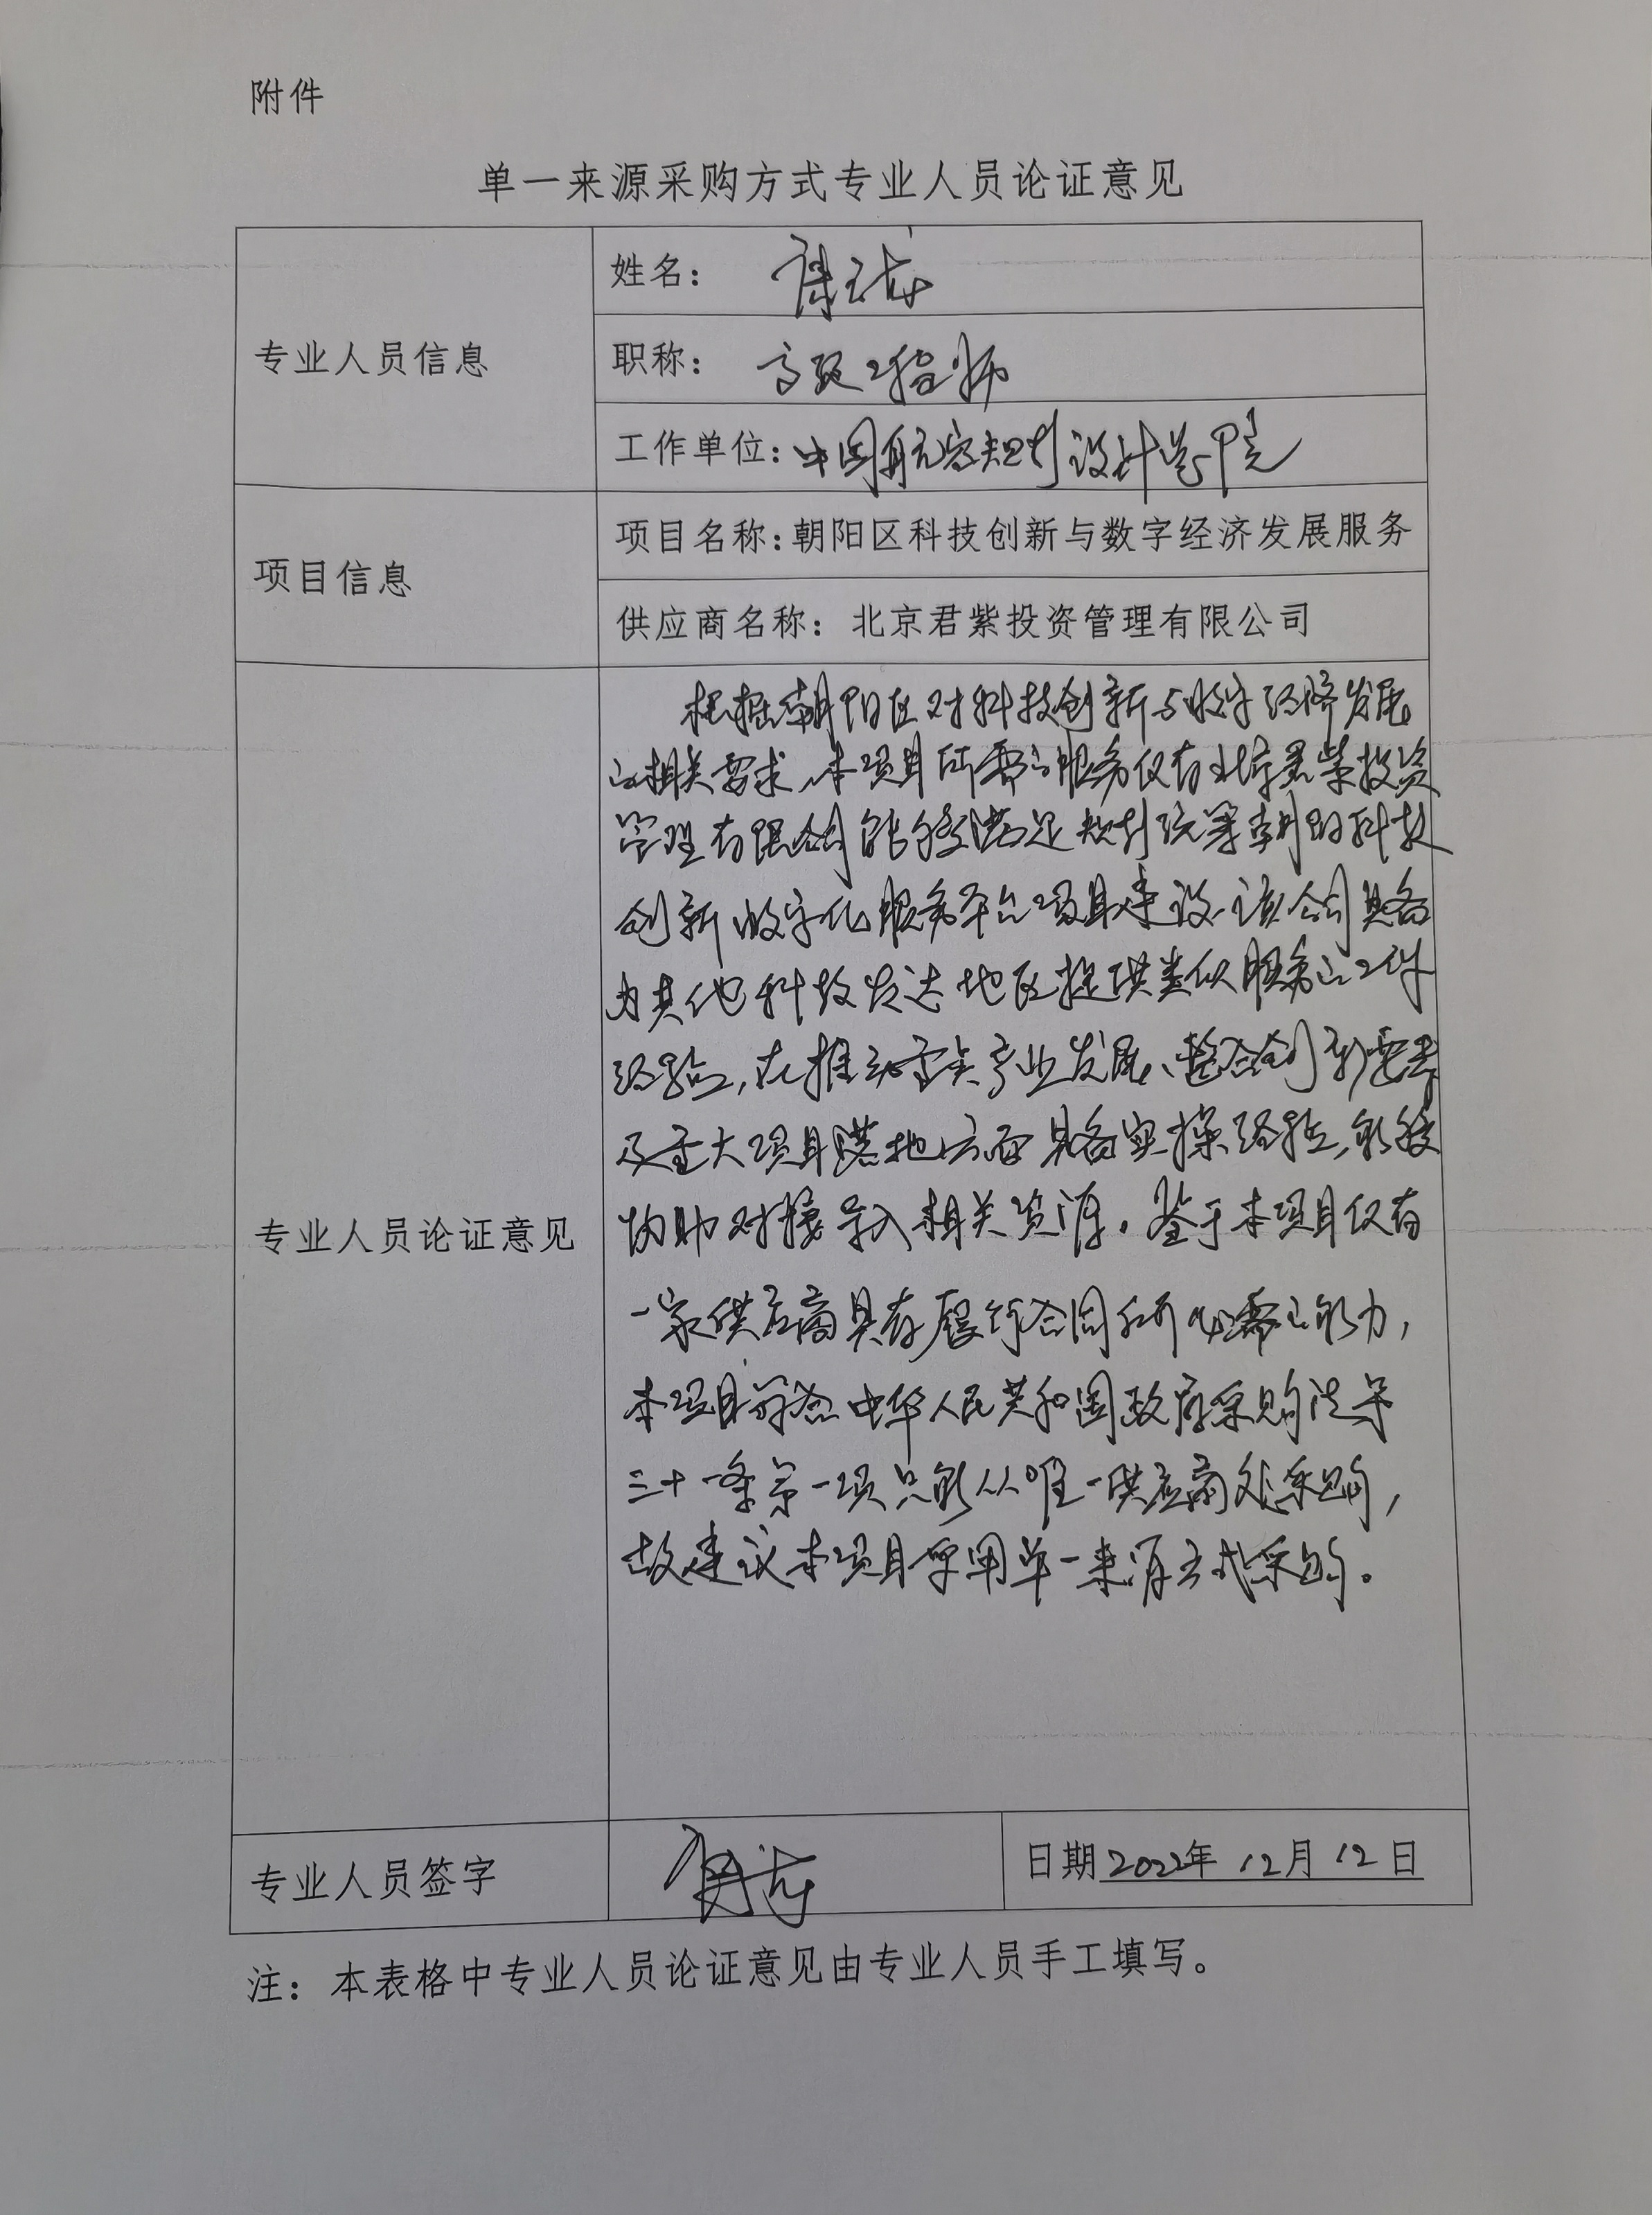 附件
单一来源采购方式专业人员论证意见
专业人员信息
姓名：
职称：高级工程师
工作单位：中国航空规划设计总院
项目信息
项目名称：朝阳区科技创新与数字经济发展服务
供应商名称：北京君紫投资管理有限公司
专业人员论证意见
根据朝阳区对科技创新与数字经济发展
的相关要求，本项目所需的服务仅有北京君紫投资
管理有限公司能够满足规划统筹朝阳科技
创新数字化服务平台项目建设，该公司具备
为其他科技发达地区提供类似服务的工作
经验，在推动重点产业发展、整合创新要素
及重大项目落地方面具备实操经验，能够
协助对接导入相关资源。鉴于本项目仅有
一家供应商具有履行合同所必需的能力，
本项目符合中华人民共和国政府采购法第
三十一条第一项只能从唯一供应商处采购，
故建议本项目采用单一来源方式采购。
专业人员签字
日期2022年12月12日
注：本表格中专业人员论证意见由专业人员手工填写。